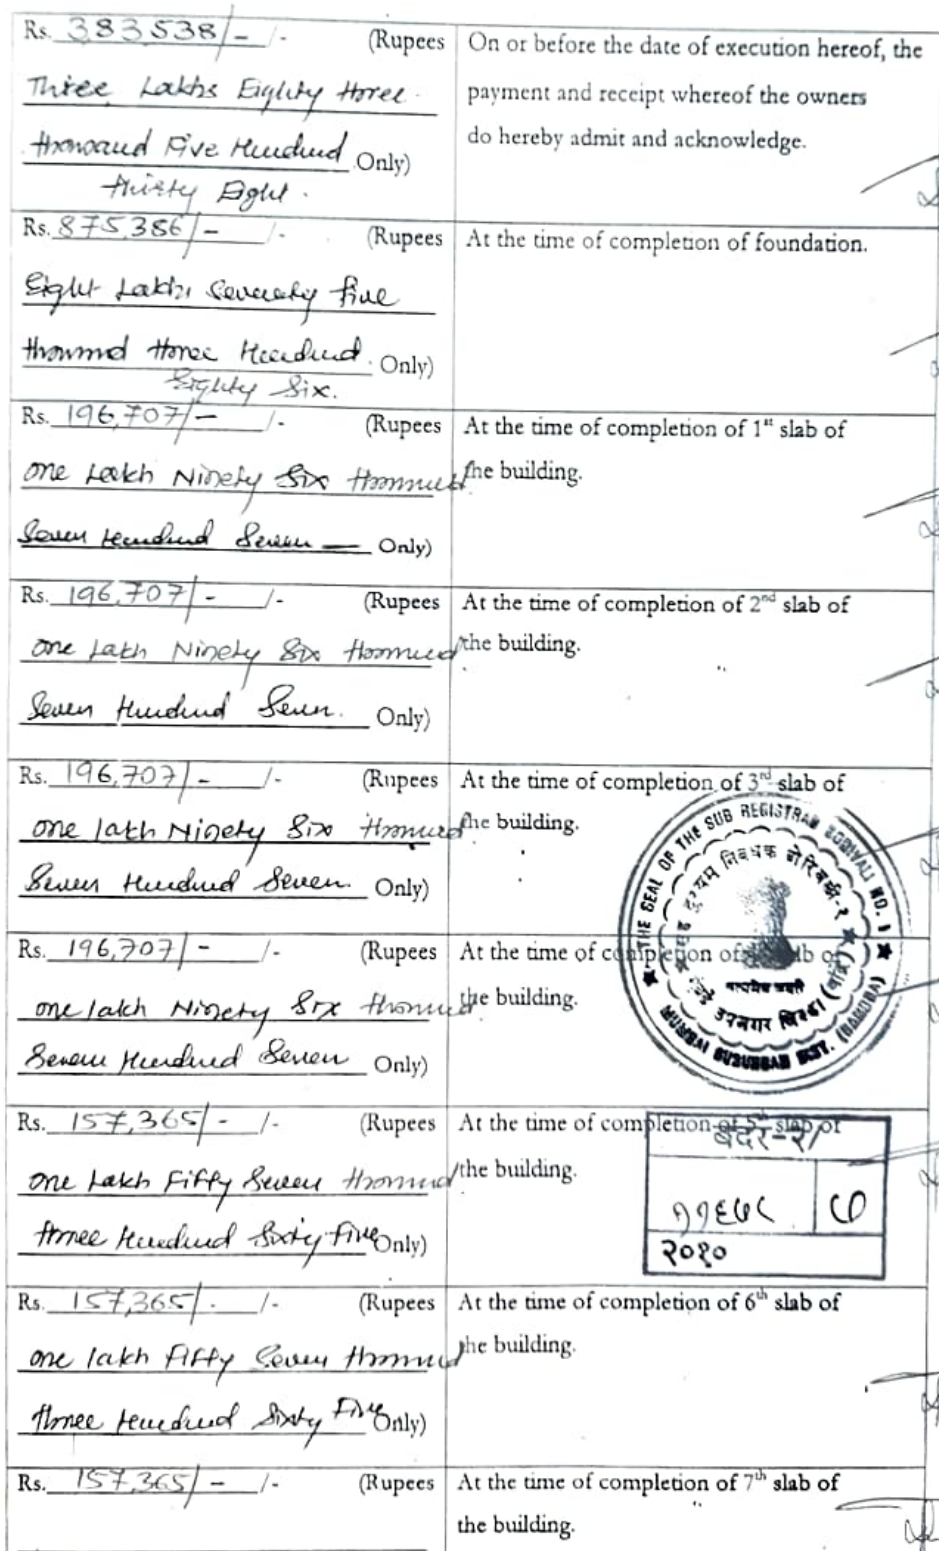 Rs. 383538/- /- (Rupees
Three Lakhs Eighty three
thousand Five Hundred Only)
thirty Eight.
On or before the date of execution hereof, the
payment and receipt whereof the owners
do hereby admit and acknowledge.
Rs. 875,386/- /- (Rupees
Eight Lakhs Seventy five
thousand three Hundred Only)
Eighty Six.
At the time of completion of foundation.
Rs. 196,707/- /- (Rupees
one Lakh Ninety Six thousand
Seven Hundred Seven — Only)
At the time of completion of 1st slab of
the building.
Rs. 196,707/- /- (Rupees
one Lakh Ninety Six thousand
Seven Hundred Seven. Only)
At the time of completion of 2nd slab of
the building.
Rs. 196,707/- /- (Rupees
one lakh Ninety Six thousand
Seven Hundred Seven Only)
At the time of completion of 3rd slab of
the building.
THE SEAL OF THE SUB REGISTRAR BORIVALI NO. 1
MUMBAI SUBURBAN DIST. (BANDRA)
सह दुय्यम निबंधक बोरिवली-१
मुंबई उपनगर जिल्हा (वांद्रे)
सत्यमेव जयते
Rs. 196,707/- /- (Rupees
one lakh Ninety Six thousand
Seven Hundred Seven Only)
At the time of completion of slab of
the building.
Rs. 157,365/- /- (Rupees
one Lakh Fifty Seven thousand
three Hundred Sixty five Only)
At the time of completion of 5th slab of
the building.
बदर-२/
११६७८
७
२०१०
Rs. 157,365/- /- (Rupees
one lakh Fifty Seven thousand
three Hundred Sixty Five Only)
At the time of completion of 6th slab of
the building.
Rs. 157,365/- /- (Rupees
At the time of completion of 7th slab of
the building.